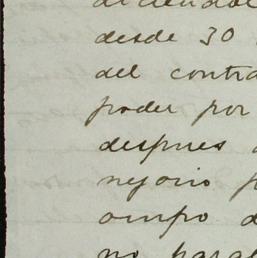 desde 30
del contra
poder por
despues
nejocio p
ompo d
no parar